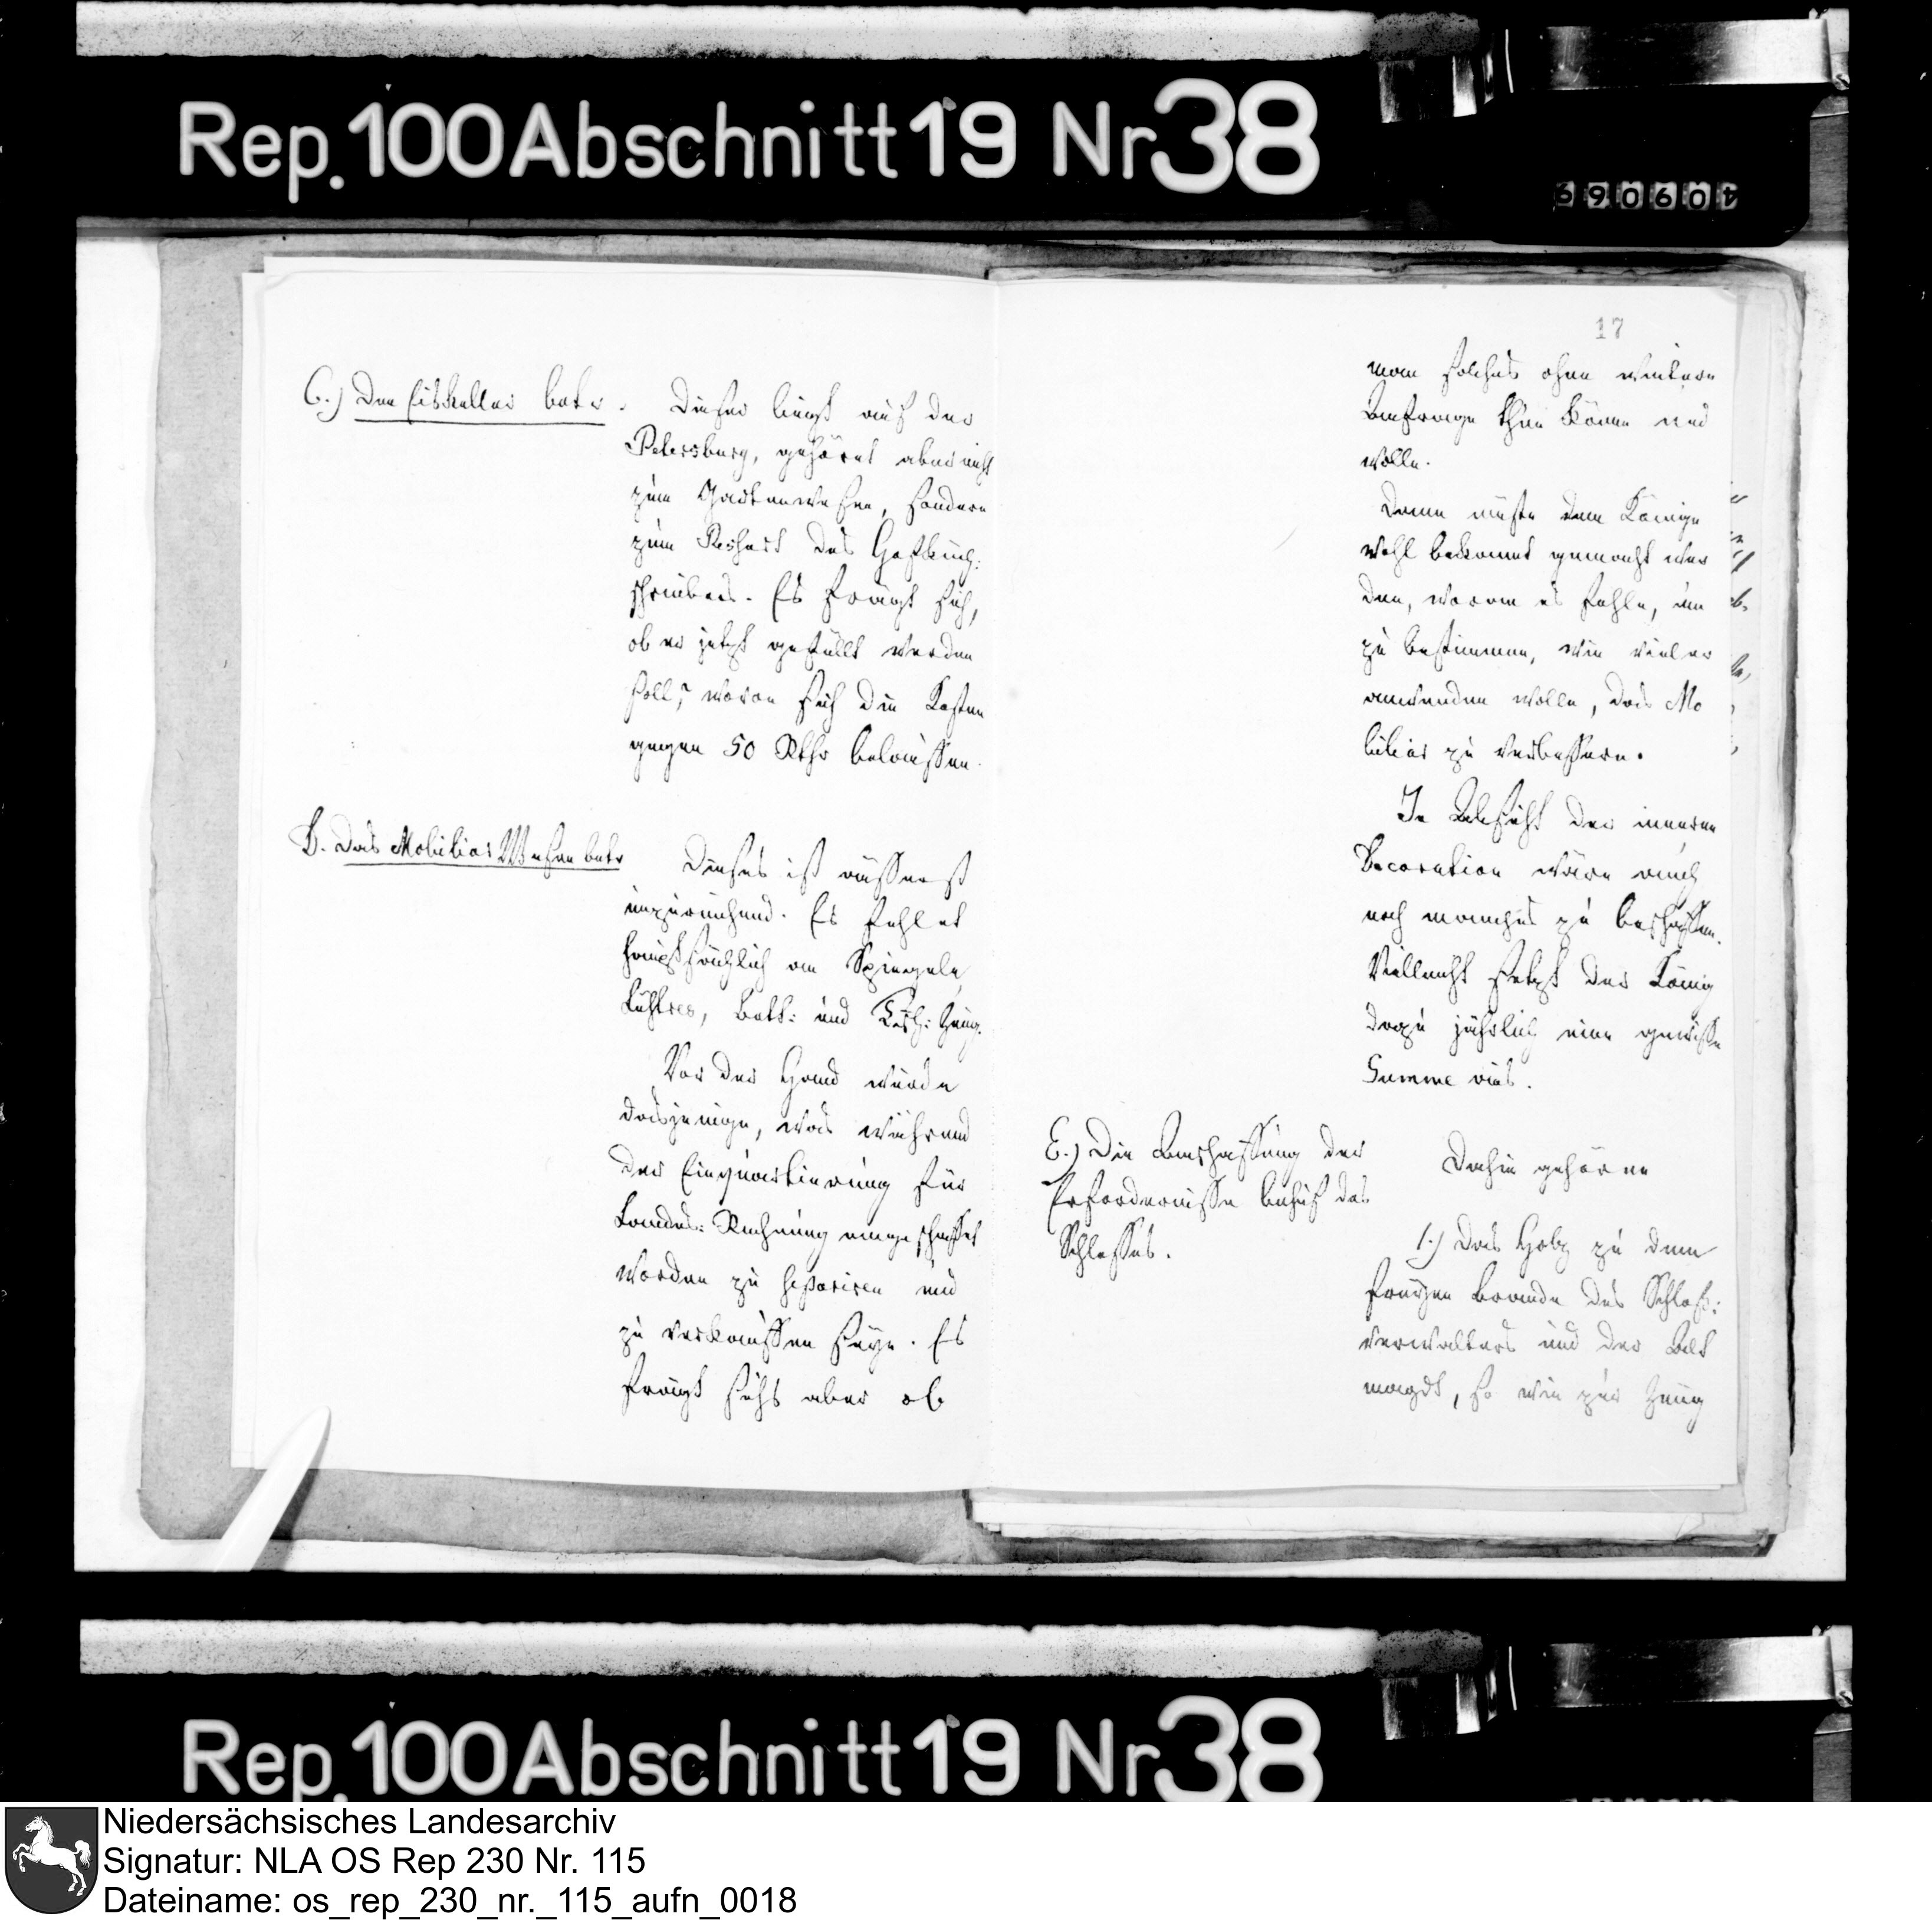 Rep. 100 Abschnitt 19 Nr 38
690604
C.) Den Eiskeller betr.
Dieser liegt auf der
Petersburg, gehöret aber nicht
zum Gartenwesen, sondern
zum Ressort des Hofküch:
schreibers. Es frägt sich,
ob er jetzt gefüllt werden
soll, wovon sich die Kosten
gegen 50 Rthr belauffen.
D. Das Mobiliar Wesen betr
Dieses ist äusserst
unzureichend. Es fehlet
hauptsächlich an Spiegeln,
Lüstres, Bett: und Tisch: Zeug.
Vor der Hand würde
dasjenige, was während
der Einquartierung für
Landes: Rechnung angeschaffet
worden zu separiren und
zu verkauffen seyn. Es
frägt sichs aber ob
17
man solches ohne weitere
Anfrage thun könne und
wolle.
Dann müste dem Könige
wohl bekannt gemacht wer
den, woran es fehle, um
zu bestimmen, wie viel er
anwenden wolle, das Mo
biliar zu verbessern.
In Absicht der innern
Decoration wäre auch
noch manches zu beschaffen.
Vielleicht setzt der König
dazu jährlich eine gewisse
Summe aus.
E.) Die Anschaffung der
Erfordernisse behuf des
Schlosses.
Dahin gehören
1.) Das Holz zu dem
freyen Brande des Schloß:
verwalters und der Bett
magdt, so wie zur Heitzung
Rep. 100 Abschnitt 19 Nr 38
Niedersächsisches Landesarchiv
Signatur: NLA OS Rep 230 Nr. 115
Dateiname: os_rep_230_nr._115_aufn_0018